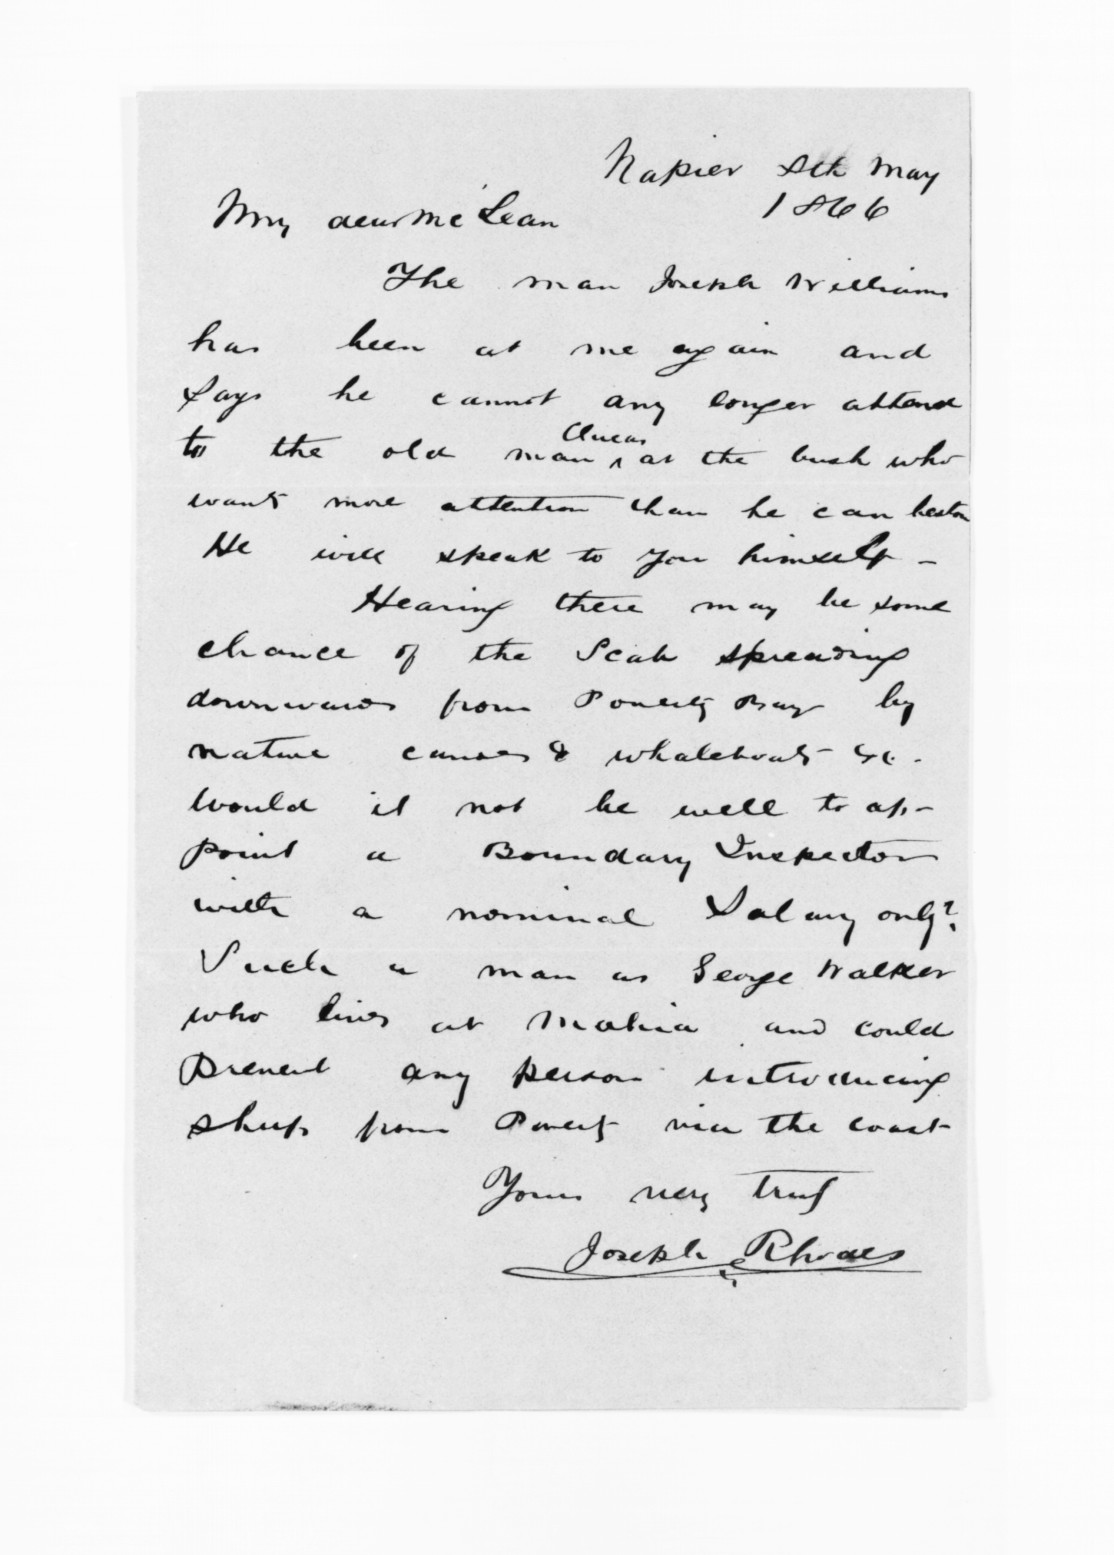 Napier 8th May
1866
My dear McLean
The man Joseph Williams
has been at me again and
says he cannot any longer attend
to the old man at the bush who
wants more attention than he can bestow
He will speak to you himself -
Hearing there may be some
chance of the Scab spreading
downwards from Poverty Bay by
nature causes & whaleboats &c.
would it not be well to ap-
point a Boundary Inspector
with a nominal Salary only?
Such a man as George Walker
who lives at Mahia and could
prevent any person introducing
sheep from Poverty via the coast
Yours very truly
Joseph Rhodes